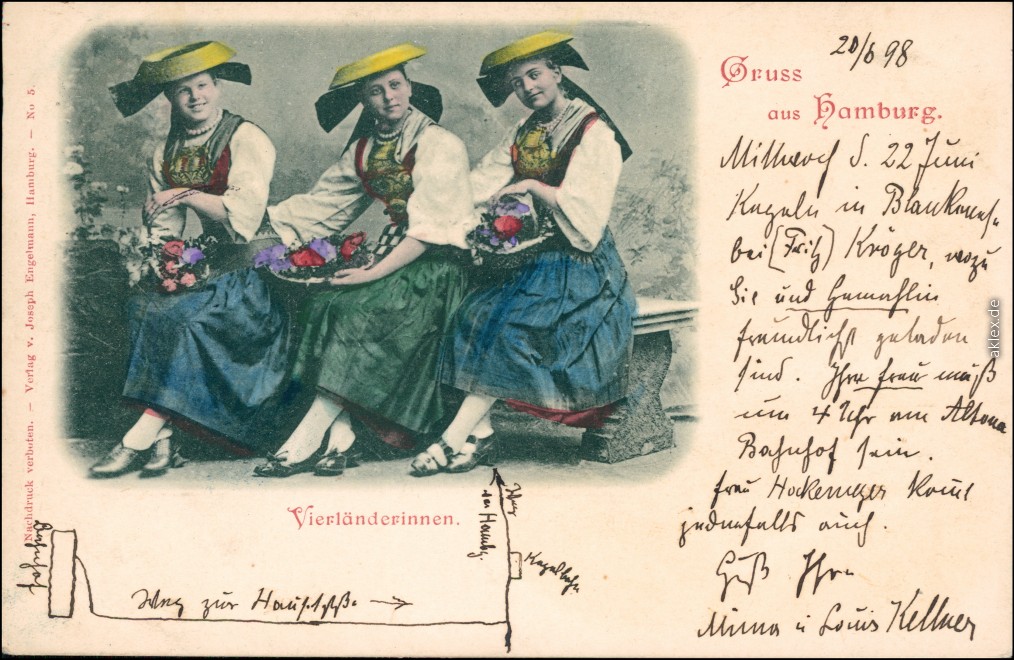 20/6 98
Gruss
aus Hamburg.
Mittwoch d. 22 Juni
Kegeln in Blankenes=
bei (Fritz) Kröger, wozu
Sie und Gemahlin
freundlichst geladen
sind. Ihre Frau muß
um 4 Uhr am Altona
Bahnhof sein.
Frau komt
jedenfalls auch.
Gruß Ihre
Mima u Louis Kellner
Vierländerinnen.
Weg
Kegelbahn
Bahnhof
Weg zur Hauptstr.
Nachdruck verboten. — Verlag v. Joseph Engelmann, Hamburg. — No 5.
aklex.de